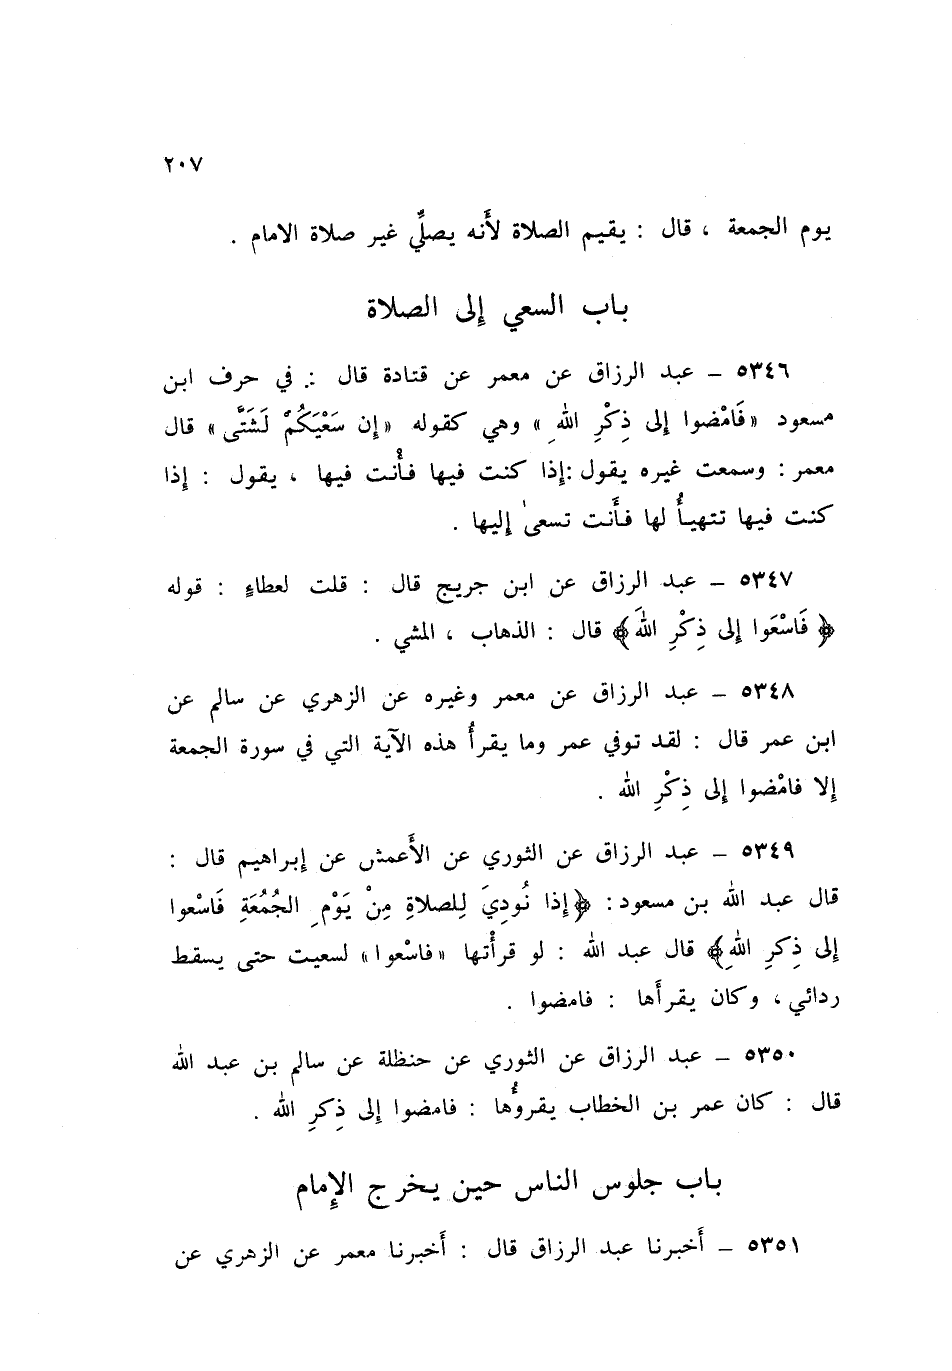 ٢٠٧
يوم الجمعة ، قال : يقيم الصلاة لأَنه يصلِّي غير صلاة الامام .
باب السعي إلى الصلاة
٥٣٤٦ – عبد الرزاق عن معمر عن قتادة قال : في حرف ابن
مسعود «فَامْضوا إلى ذِكْرِ اللهِ » وهي كقوله «إن سَعْيَكُمْ لَشَتَّى» قال
معمر : وسمعت غيره يقول :إذا كنت فيها فأَنت فيها ، يقول : إذا
كنت فيها تتهيأُ لها فأَنت تسعىٰ إليها .
٥٣٤٧ – عبد الرزاق عن ابن جريج قال : قلت لعطاءٍ : قوله
﴿فَاسْعَوا إلى ذِكْرِ اللهَ﴾ قال : الذهاب ، المشي .
٥٣٤٨ – عبد الرزاق عن معمر وغيره عن الزهري عن سالم عن
ابن عمر قال : لقد توفي عمر وما يقرأُ هذه الآية التي في سورة الجمعة
إلا فامْضوا إلى ذِكْرِ الله .
٥٣٤٩ – عبد الرزاق عن الثوري عن الأَعمش عن إبراهيم قال :
قال عبد الله بن مسعود : ﴿إذا نُودِيَ لِلصلاةِ مِنْ يَوْمِ الجُمُعَةِ فَاسْعوا
إلى ذِكرِ اللهِ﴾ قال عبد الله : لو قرأْتها «فاسْعوا» لسعيت حتى يسقط
ردائي ، وكان يقرأَها : فامضوا .
٥٣٥٠ – عبد الرزاق عن الثوري عن حنظلة عن سالم بن عبد الله
قال : كان عمر بن الخطاب يقروُٴها : فامضوا إلى ذِكرِ الله .
باب جلوس الناس حين يخرج الإمام
٥٣٥١ – أَخبرنا عبد الرزاق قال : أَخبرنا معمر عن الزهري عن